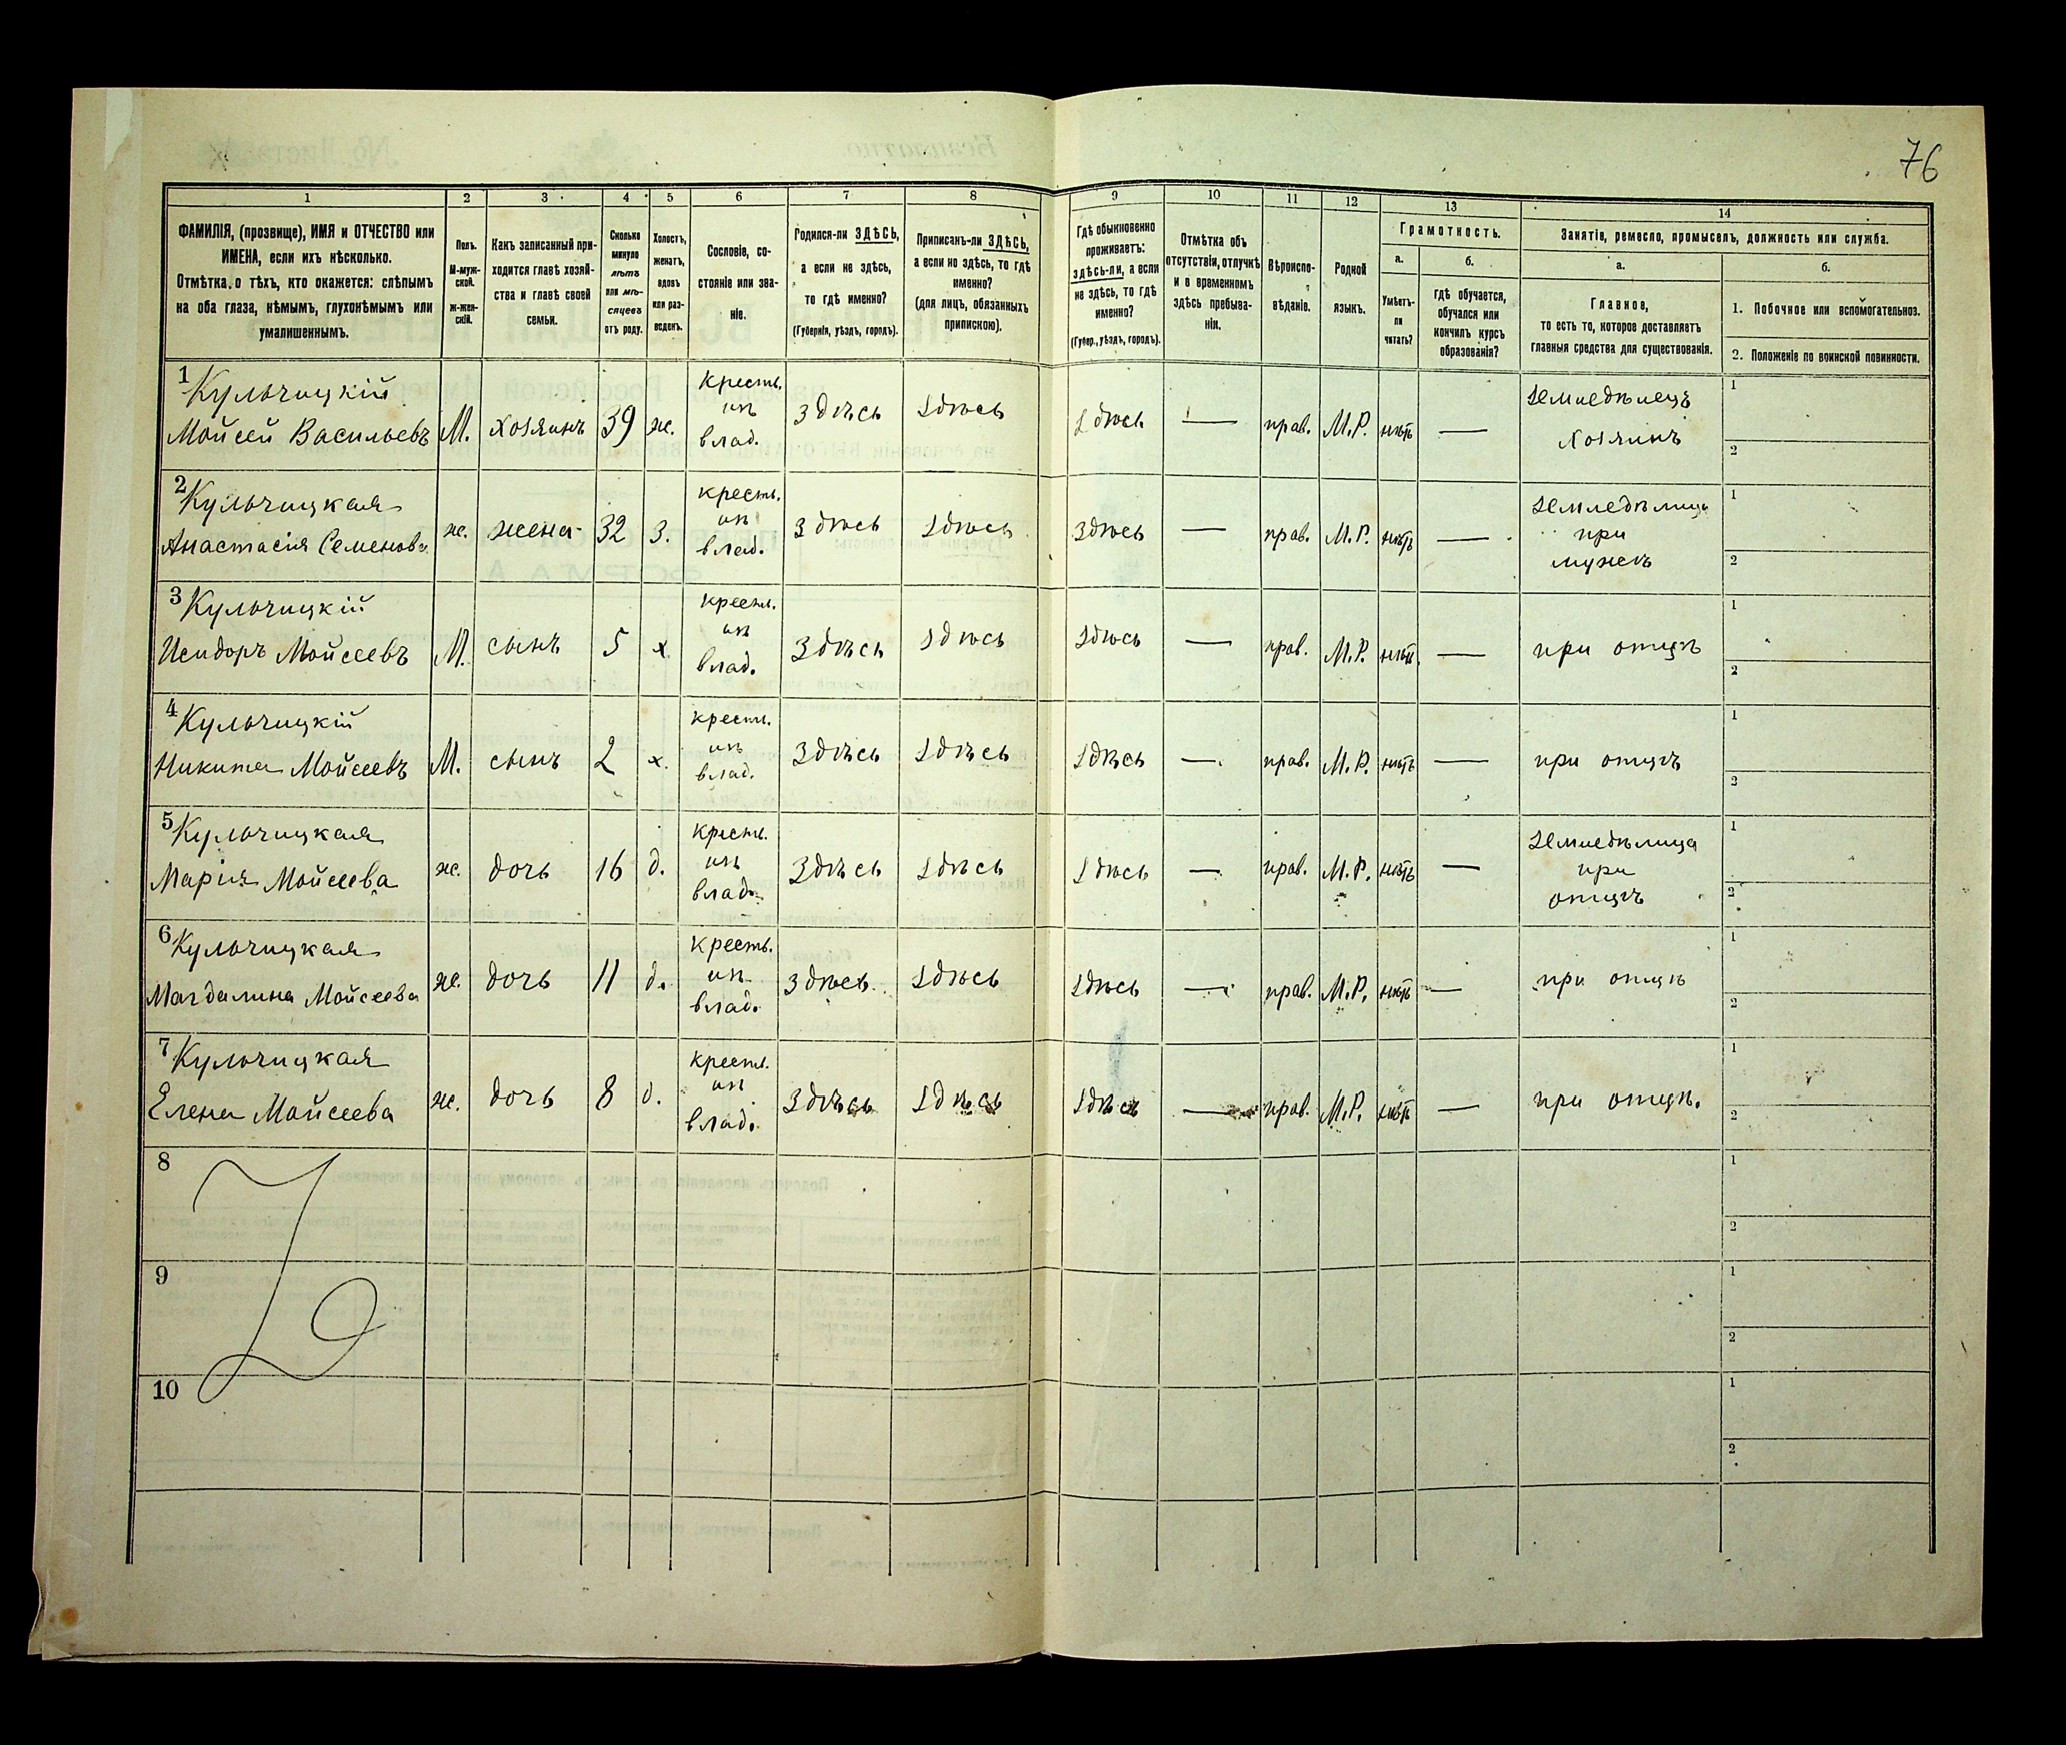 76
1 2 3 4 5 6 7 8 9 10 11 12 13 14
ФАМИЛІЯ, (прозвище), ИМЯ и ОТЧЕСТВО или
ИМЕНА, если ихъ нѣсколько.
Отмѣтка о тѣхъ, кто окажется: слѣпымъ
на оба глаза, нѣмымъ, глухонѣмымъ или
умалишеннымъ.
Полъ.
М-муж-
ской.
Ж-жен-
скій.
Какъ записанный при-
ходится главѣ хозяй-
ства и главѣ своей
семьи.
Сколько
минуло
лѣтъ
или мѣ-
сяцевъ
отъ роду.
Холостъ,
женатъ,
вдовъ
или раз-
веденъ.
Сословіе, со-
стояніе или зва-
ніе.
Родился-ли ЗДѢСЬ,
а если не здѣсь,
то гдѣ именно?
(Губернія, уѣздъ, городъ).
Приписанъ-ли ЗДѢСЬ,
а если не здѣсь, то гдѣ
именно?
(для лицъ, обязанныхъ
припискою).
Гдѣ обыкновенно
проживаетъ:
здѣсь-ли, а если
не здѣсь, то гдѣ
именно?
(Губер., уѣздъ, городъ).
Отмѣтка объ
отсутствіи, отлучкѣ
и о временномъ
здѣсь пребыва-
ніи.
Вѣроиспо-
вѣданіе.
Родной
языкъ.
Грамотность.
а.
Умѣетъ-
ли
читать?
б.
гдѣ обучается,
обучался или
кончилъ курсъ
образованія?
Занятіе, ремесло, промыселъ, должность или служба.
а.
Главное,
то есть то, которое доставляетъ
главныя средства для существованія.
б.
1. Побочное или вспомогательное.
2. Положеніе по воинской повинности.
1 Кульчицкій
Мойсей Васильевъ М. хозяинъ 39 ж. кресть. изъ влад. здѣсь здѣсь здѣсь — прав. М.Р. нѣтъ — земледѣлецъ хозяинъ 1 2
2 Кульчицкая
Анастасія Семенова ж. жена 32 з. кресть. изъ влад. здѣсь здѣсь здѣсь — прав. М.Р. нѣтъ — земледѣлица при мужѣ 1 2
3 Кульчицкій
Исидоръ Мойсеевъ М. сынъ 5 х. кресть. изъ влад. здѣсь здѣсь здѣсь — прав. М.Р. нѣтъ — при отцѣ 1 2
4 Кульчицкій
Никита Мойсеевъ М. сынъ 2 х. кресть. изъ влад. здѣсь здѣсь здѣсь — прав. М.Р. нѣтъ — при отцѣ 1 2
5 Кульчицкая
Марія Мойсеева ж. дочь 16 д. кресть. изъ влад. здѣсь здѣсь здѣсь — прав. М.Р. нѣтъ — земледѣлица при отцѣ 1 2
6 Кульчицкая
Магдалина Мойсеева ж. дочь 11 д. кресть. изъ влад. здѣсь здѣсь здѣсь — прав. М.Р. нѣтъ — при отцѣ 1 2
7 Кульчицкая
Елена Мойсеева ж. дочь 8 д. кресть. изъ влад. здѣсь здѣсь здѣсь — прав. М.Р. нѣтъ — при отцѣ. 1 2
8 1 2
9 1 2
10 1 2